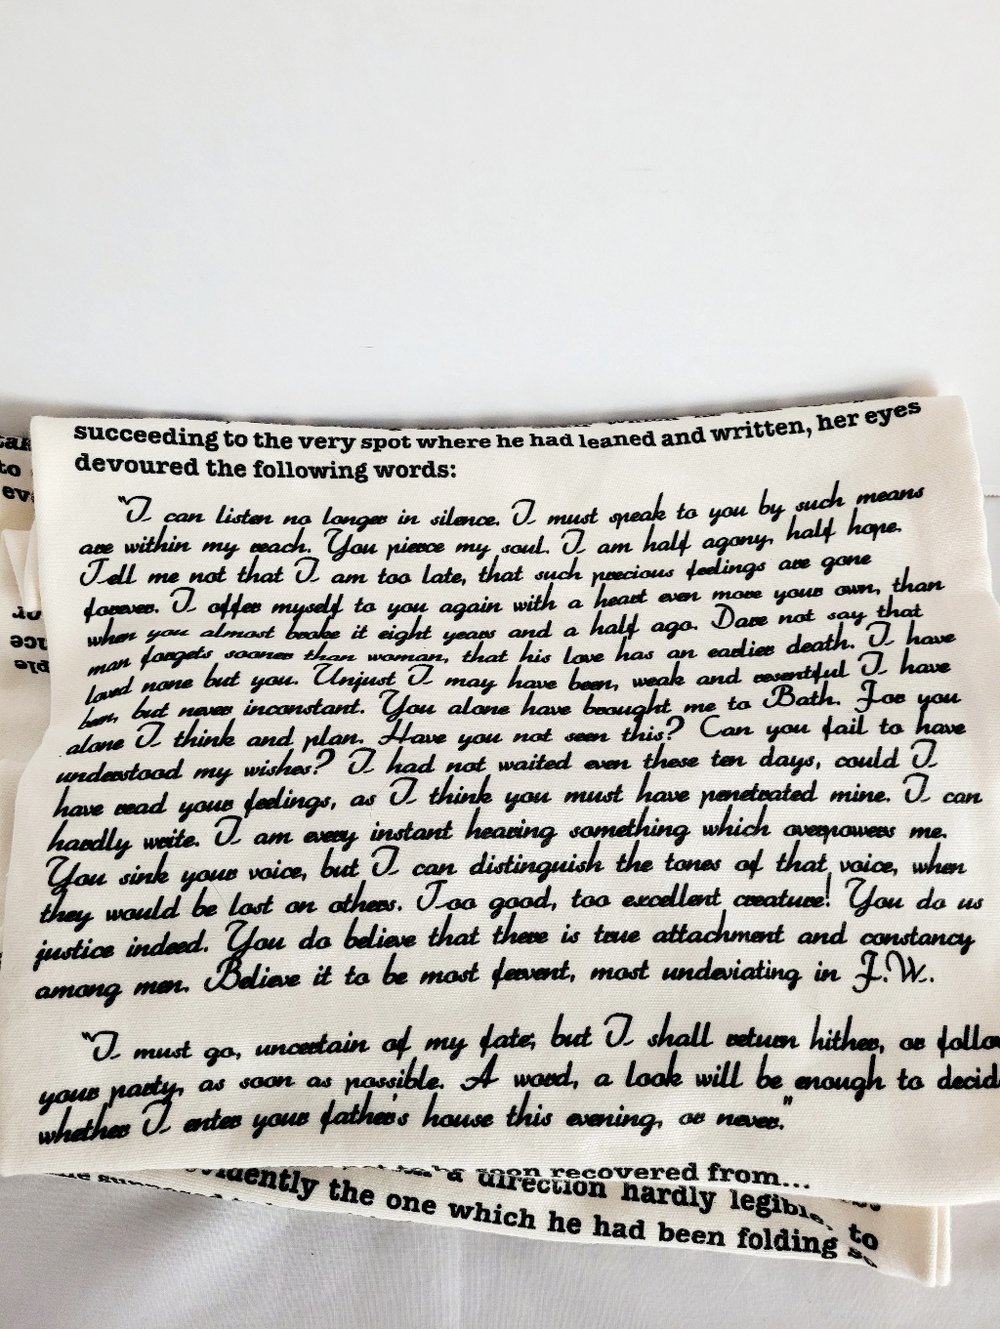 succeeding to the very spot where he had leaned and written, her eyes
devoured the following words:
"I can listen no longer in silence. I must speak to you by such means
are within my reach. You pierce my soul. I am half agony, half hope.
Tell me not that I am too late, that such precious feelings are gone
forever. I offer myself to you again with a heart even more your own, than
when you almost broke it eight years and a half ago. Dare not say that
man forgets sooner than woman, that his love has an earlier death. I have
loved none but you. Unjust I may have been, weak and resentful I have
been, but never inconstant. You alone have brought me to Bath. For you
alone I think and plan. Have you not seen this? Can you fail to have
understood my wishes? I had not waited even these ten days, could I
have read your feelings, as I think you must have penetrated mine. I can
hardly write. I am every instant hearing something which overpowers me.
You sink your voice, but I can distinguish the tones of that voice, when
they would be lost on others. Too good, too excellent creature! You do us
justice indeed. You do believe that there is true attachment and constancy
among men. Believe it to be most fervent, most undeviating in F.W.
"I must go, uncertain of my fate; but I shall return hither, or
your party, as soon as possible. A word, a look will be enough to
whether I enter your father's house this evening, or never."
soon recovered from...
a direction hardly
the one which he had been folding
to
to